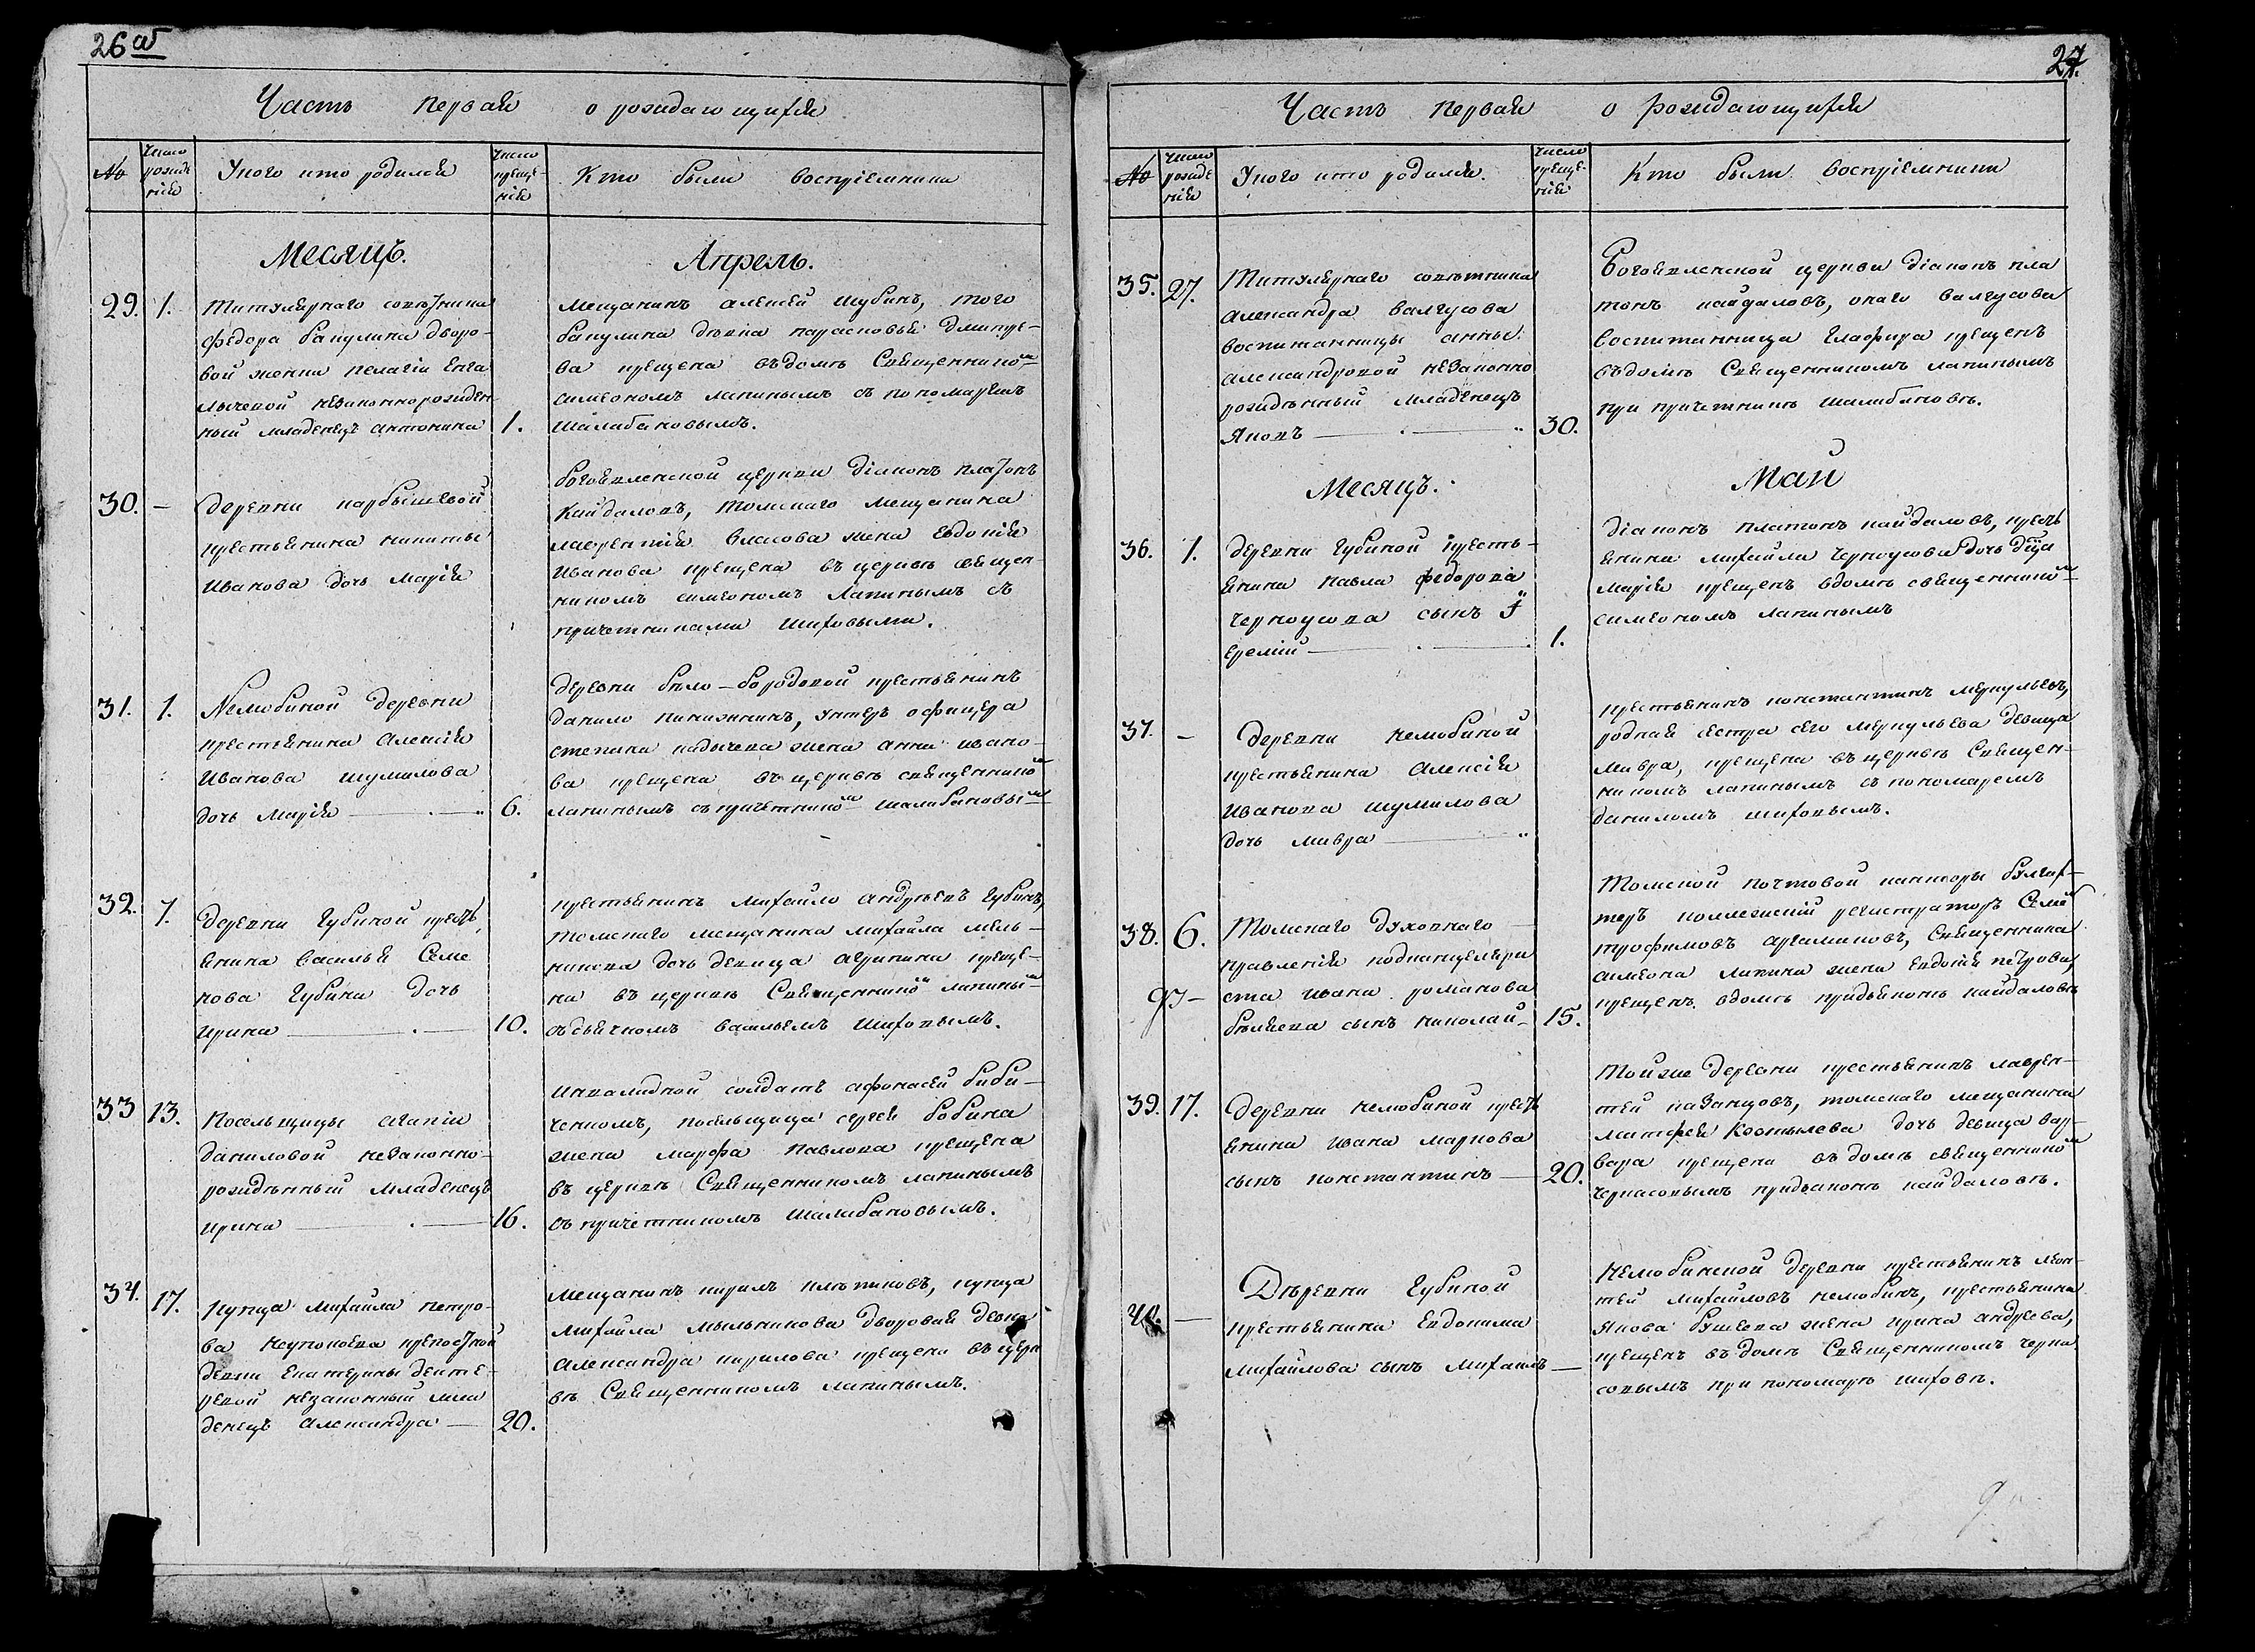 26 об
Часть первая о рождающихся
№
Число рожденія
У кого кто родился
Число крещенія
Кто были воспріемники
Месяцъ. Апрель.
29. 1.
Титулярнаго советника
федора Бакулина дворо-
вой женки пелагіи
незаконнорожден-
ный младенецъ антонина 1.
Мещанинъ алексей шубинъ, того
бакулина девка парасковья дмитре-
ва крещена въ доме Священником
симеономъ лапинымъ съ пономаремъ
Шалабановымъ.
30. —
Деревни карбышевой
крестьянина никиты
Иванова дочь марія
богоявленской церкви діаконъ платонъ
Кайдаловъ, томскаго мещанина
лаврентія власова жена Евдокія
Иванова крещена въ церкве священ-
никомъ симеономъ Лапинымъ съ
причетниками шиховыми.
31. 1.
Нелюбиной деревни
крестьянина Алексія
Иванова шумилова
дочь марія — 6.
деревни бело-бородовой крестьянинъ
данило кинжинъ, унтеръ офицера
степана кадычева жена анна ивано-
ва крещена въ церкве священником
лапинымъ съ причетником шалабановым
32. 7.
деревни Губиной кресть
янина василья Семе
нова Губина дочь
ирина — 10.
крестьянинъ михайло андреевъ Губинъ,
томскаго мещанина михайла мель-
никова дочь девица агрипина креще-
на въ церкве Священником лапиным
съ дьячкомъ васильемъ Шиховымъ.
33 13.
Посельщицы агапіи
даниловой незаконно-
рожденный младенецъ
ирина — 16.
инвалидной солдатъ афонасей биби-
ченкомъ, посельщица сергея бобина
жена марфа Павлова крещена
въ церкве Священникомъ лапинымъ
съ причетникомъ Шалабановымъ.
34. 17.
купца михайла петро-
ва крепостной
девки Екатерины декте-
ревой незаконный мла
денецъ александра — 20.
мещанинъ кирилъ плотиковъ, купца
михайла мыльникова дворовая девка
александра кирилова крещена въ церк
ве Священникомъ лапинымъ.
27.
Часть первая о рождающихся
№
Число рожденія
У кого кто родился.
Число крещенія
Кто были воспріемники
35. 27.
Титулярнаго советника
александра валгусова
воспитанницы анны
александровой незаконно
рожденный младенецъ
Яковъ — 30.
Богоявленской церкви діаконъ пла
тонъ кайдаловъ, онаго валгусова
воспитанница Глафира крещенъ
въ доме Священникомъ лапинымъ
при причетнике шалабанове.
Месяцъ. Май
36. 1.
деревни Губиной кресть-
янина павла федорова
Черноусова сынъ І
еремій — 1.
діаконъ платонъ кайдаловъ, кресть
янина михайла Черноусова дочь девица
марія крещенъ в доме священником
симеономъ лапинымъ
37. —
деревни нелюбиной
крестьянина алексія
Иванова шумилова
дочь мавра —
крестьянинъ константинъ меркульевъ,
родная сестра его меркульева девица
мавра, крещена въ церкве Священ-
никомъ лапинымъ съ пономаремъ
даниломъ шиховымъ.
38. 6.
Томскаго духовнаго
правленія подканцеляри
ста ивана романова
беляева сынъ николай — 15.
Томской почтовой канторы бухгал-
теръ коллежскій регистраторъ Семен
трофимовъ аргамаковъ, Священника
симеона лапина жена Евдокія петрова,
крещенъ в доме при дьяконе кайдалове
39. 17.
Деревни нелюбиной кресть
янина ивана маркова
сынъ константинъ — 20.
Той же деревни крестьянинъ лаврен-
тей казанцовъ, томскаго мещанина
матфея Костылева дочь девица вар-
вара крещена въ доме священником
Чернасовымъ при дьяконе кайдалове.
40. —
Деревни Губиной
крестьянина Евдокима
михайлова сынъ михаилъ —
нелюбинской деревни крестьянинъ леон-
тей михайловъ нелюбинъ, крестьянина
якова бушева жена ирина андреева,
крещенъ въ доме Священникомъ черна
совымъ при пономаре шихове.